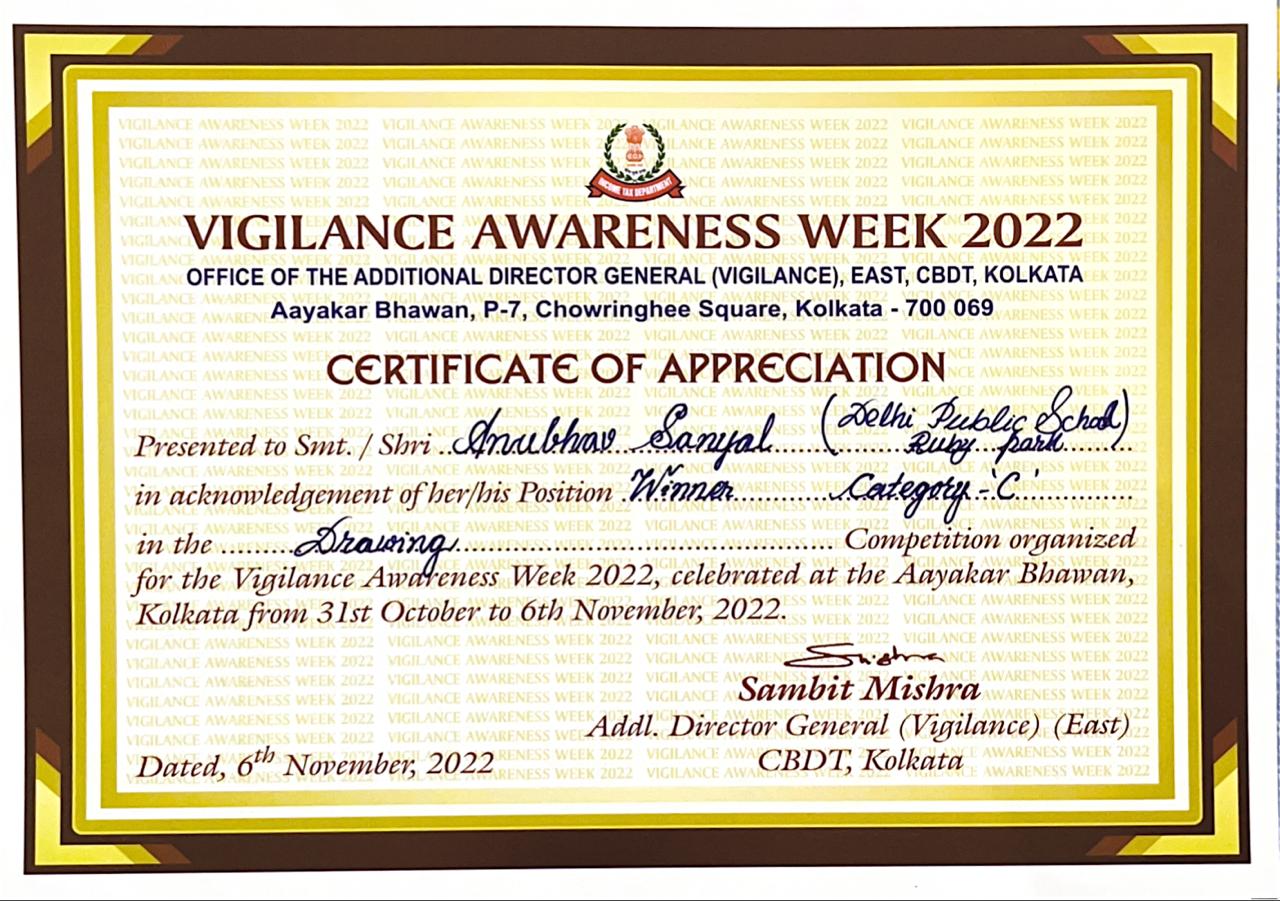 INCOME TAX DEPARTMENT
VIGILANCE AWARENESS WEEK 2022
OFFICE OF THE ADDITIONAL DIRECTOR GENERAL (VIGILANCE), EAST, CBDT, KOLKATA
Aayakar Bhawan, P-7, Chowringhee Square, Kolkata - 700 069
CERTIFICATE OF APPRECIATION
Presented to Smt. / Shri ..Anubhav Sanyal (Delhi Public School) Ruby park
in acknowledgement of her/his Position .Winner............Category - 'C'...............
in the .........Drawing................................................... Competition organized
for the Vigilance Awareness Week 2022, celebrated at the Aayakar Bhawan,
Kolkata from 31st October to 6th November, 2022.
Sambit Mishra
Addl. Director General (Vigilance) (East)
Dated, 6th November, 2022 CBDT, Kolkata